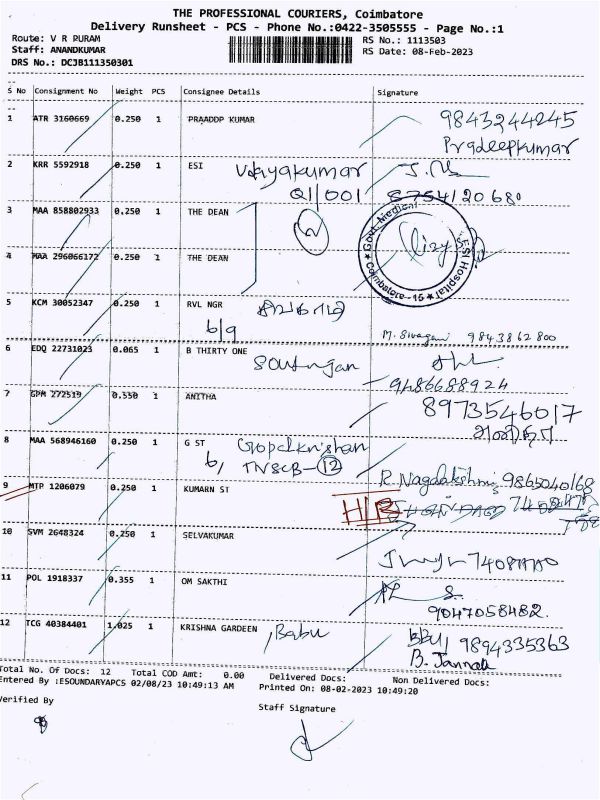 THE PROFESSIONAL COURIERS, Coimbatore
Delivery Runsheet - PCS - Phone No.:0422-3505555 - Page No.:1
Route: V R PURAM
RS No.: 1113503
Staff: ANANDKUMAR
RS Date: 08-Feb-2023
DRS No.: DCJB111350301
S No Consignment No Weight PCS Consignee Details Signature
1 ATR 3160669 0.250 1 PRAADDP KUMAR 9843244245
Pradeepkumar
2 KRR 5592918 0.250 1 ESI Vijayakumar
Q1/001 8754120680
3 MAA 858802933 0.250 1 THE DEAN
4 MAA 296066172 0.250 1 THE DEAN
Govt. Medical ESI Hospital
★ Coimbatore-15 ★
5 KCM 30052347 0.250 1 RVL NGR
b/9 M. Sivagami 9843862800
6 EDQ 22731023 0.065 1 B THIRTY ONE
9486688924
7 GPM 272519 0.550 1 ANITHA 8973546017
8 MAA 568946160 0.250 1 G ST Gopalkrishnan
TNSCB-12 R. Nagalakshmi 9865040168
9 MTP 1206079 0.250 1 KUMARN ST
10 SVM 2648324 0.250 1 SELVAKUMAR
11 POL 1918337 0.355 1 OM SAKTHI
9047058482
12 TCG 40384401 1.025 1 KRISHNA GARDEEN , Babu 9894335363
B. Jannah
Total No. Of Docs: 12 Total COD Amt: 0.00 Delivered Docs: Non Delivered Docs:
Entered By :ESOUNDARYAPCS 02/08/23 10:49:13 AM Printed On: 08-02-2023 10:49:20
Verified By
Staff Signature